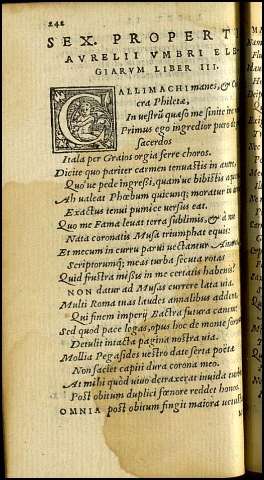 242
SEX. PROPERTI
AVRELII VMBRI ELE
GIARVM LIBER III.
CALLIMACHI manes, & Co
cra Philetæ,
In uestrũ quæso me sinite ire
Primus ego ingredior puro de
sacerdos
Itala per Graios orgia ferre choros.
Dicite quo pariter carmen tenuastis in antro,
Quo ue pede ingressi, quam'ue bibistis aquam
Ah ualeat Phœbum quicunq; moratur in
Exactus tenui pumice uersus eat.
Quo me Fama leuat terra sublimis, & à me
Nata coronatis Musa triumphat equis:
Et mecum in curru parui uectantur Amores
Scriptorumq; meas turba secuta rotas
Quid frustra missis in me certatis habenis?
NON datur ad Musas currere lata uia.
Multi Roma tuas laudes annalibus addent,
Qui finem imperij Bactra futura canent
Sed quod pace legas, opus hoc de monte soror
Detulit intacta pagina nostra uia.
Mollia Pegasides uestro date serta poetæ
Non faciet capiti dura corona meo.
At mihi quod uiuo detraxerat inuida turba
Post obitum duplici fœnore reddet honos
OMNIA post obitum fingit maiora uetustas